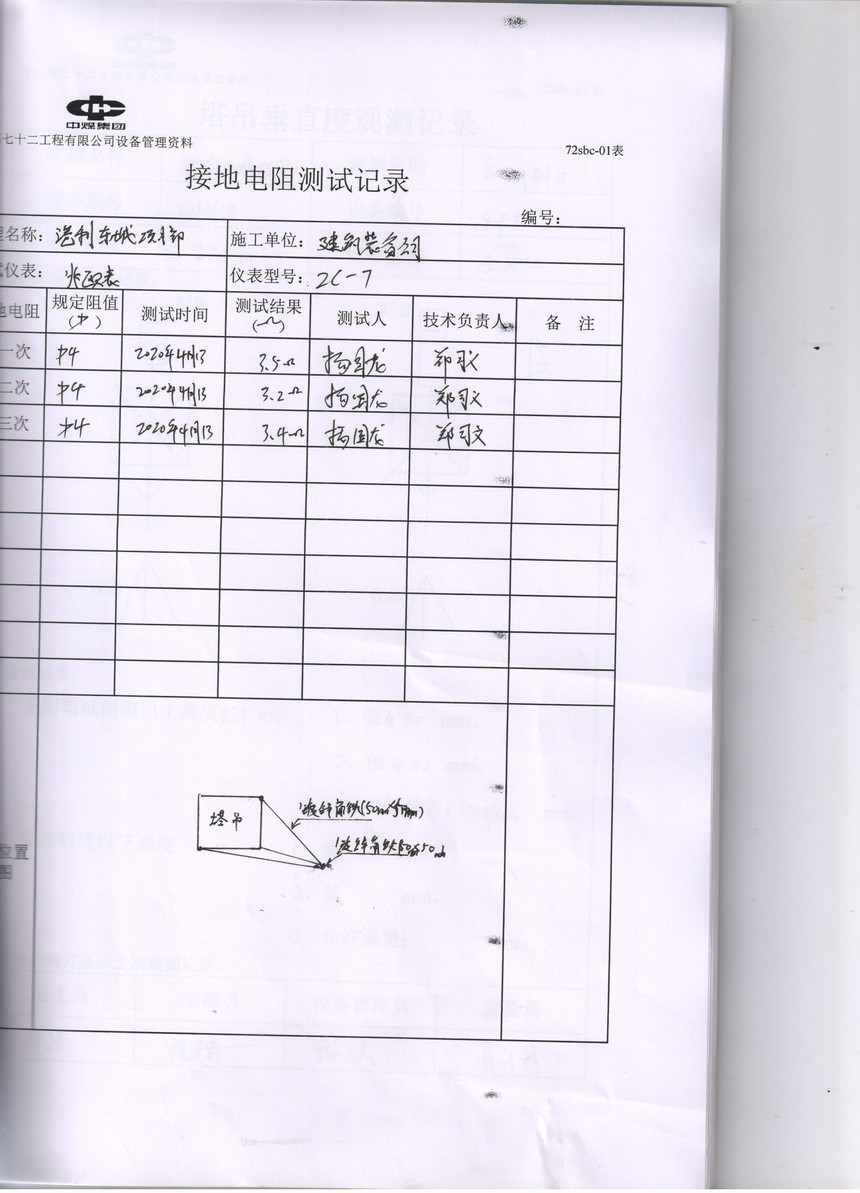 中煤集团
七十二工程有限公司设备管理资料
72sbc-01表
接地电阻测试记录
编号：
程名称： 东城项目部 施工单位： 建筑装备公司
试仪表： 兆欧表 仪表型号： ZC-7
地电阻 规定阻值 测试时间 测试结果 测试人 技术负责人 备 注
(Ω)
一次 4 2020年4月13 3.5Ω 杨国龙
二次 4 2020年4月13 3.2Ω 杨国龙
三次 4 2020年4月13 3.4Ω 杨国龙
塔吊
位置
图